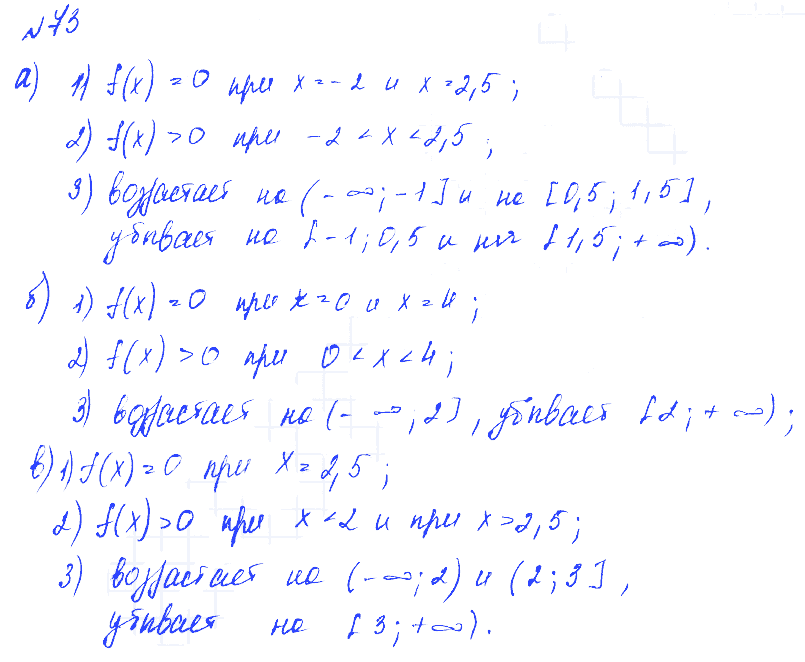 №73
а) 1) f(x) = 0 при x = -2 и x = 2,5;
2) f(x) > 0 при -2 < x < 2,5;
3) возрастает на (-∞; -1] и на [0,5; 1,5],
убывает на [-1; 0,5 и на [1,5; +∞).
б) 1) f(x) = 0 при x = 0 и x = 4;
2) f(x) > 0 при 0 < x < 4;
3) возрастает на (-∞; 2], убывает [2; +∞);
в) 1) f(x) = 0 при x = 2,5;
2) f(x) > 0 при x < 2 и при x > 2,5;
3) возрастает на (-∞; 2) и (2; 3],
убывает на [3; +∞).